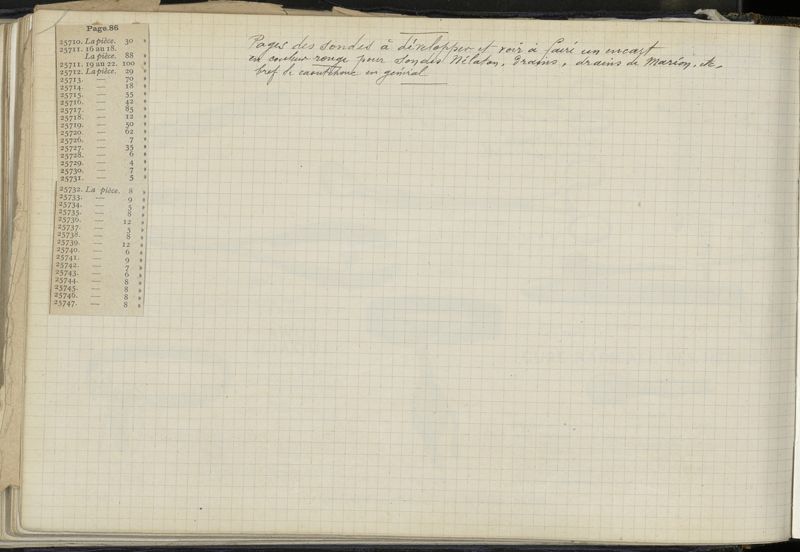 Page.86
25710. La pièce. 30 »
25711. 16 au 18.
La pièce. 88 »
25711. 19 au 22. 100 »
25712. La pièce. 29 »
25713. — 70 »
25714. — 18 »
25715. — 55 »
25716. — 42 »
25717. — 85 »
25718. — 12 »
25719. — 50 »
25720. — 62 »
25726. — 7 »
25727. — 35 »
25728. — 6 »
25729. — 4 »
25730. — 7 »
25731. — 5 »
25732. La pièce. 8 »
25733. — 9 »
25734. — 5 »
25735. — 8 »
25736. — 12 »
25737. — 5 »
25738. — 8 »
25739. — 12 »
25740. — 6 »
25741. — 9 »
25742. — 7 »
25743. — 6 »
25744. — 8 »
25745. — 8 »
25746. — 8 »
25747. — 8 »
Pages des sondes à développer et voir à faire un encart
en couleur rouge pour sondes Nélaton, Drains, drains de Marion, etc.
bref le caoutchouc en général